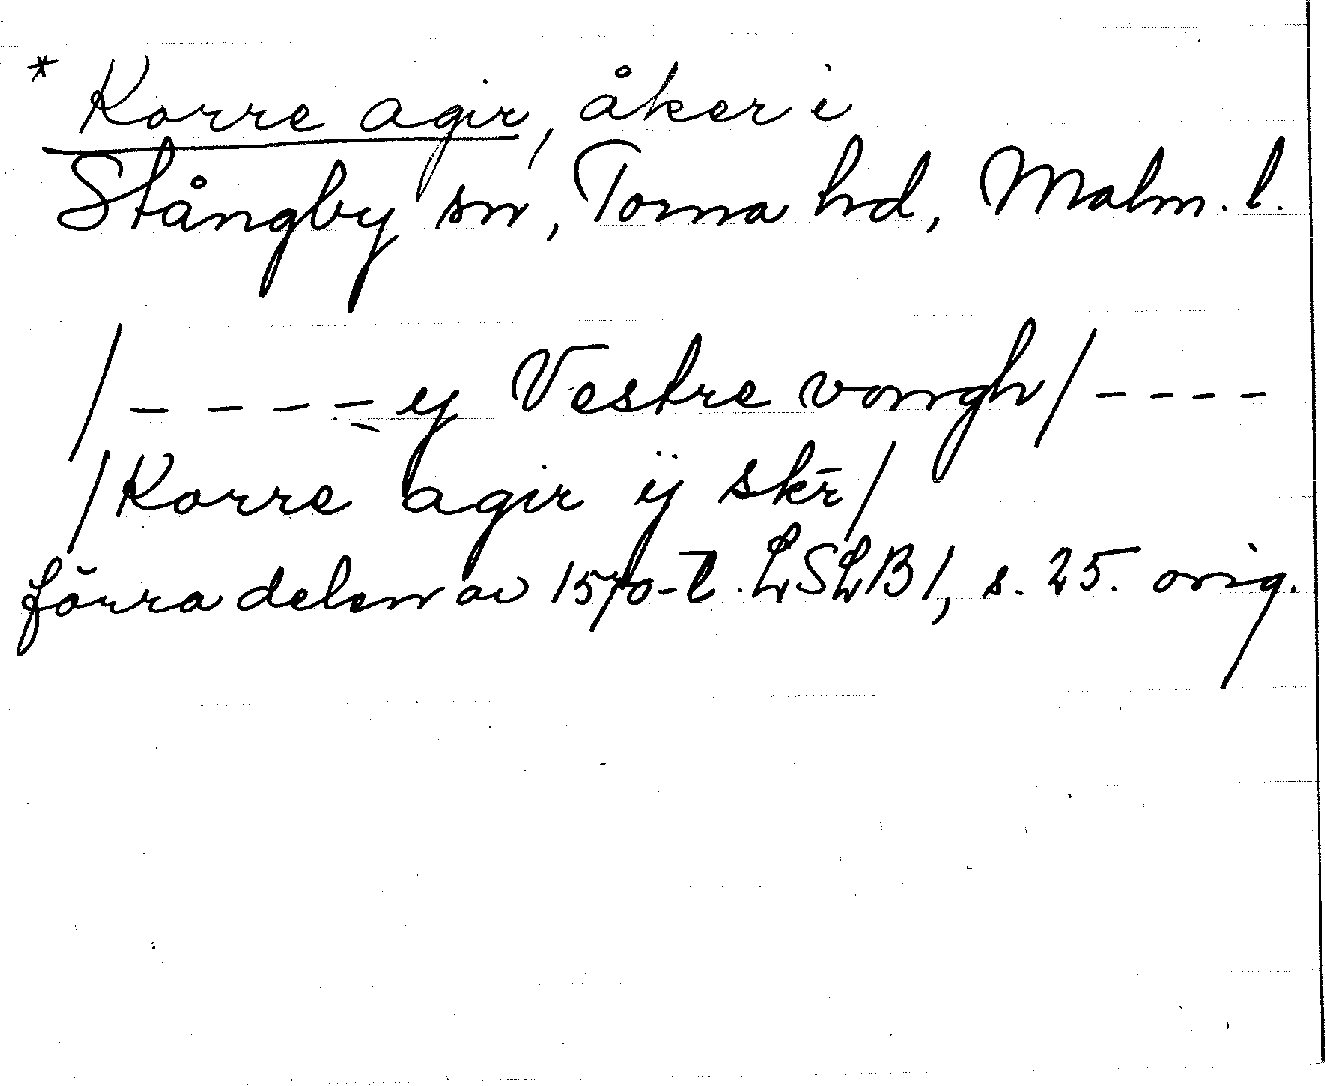 * Korre agir, åker i
Stångby sn, Torna hd, Malm. l.
/ - - - - y Vestre vongh / - - - -
/ Korre agir ij skr̄ /
förra delen av 1570-t. LSLB 1, s. 25. orig.